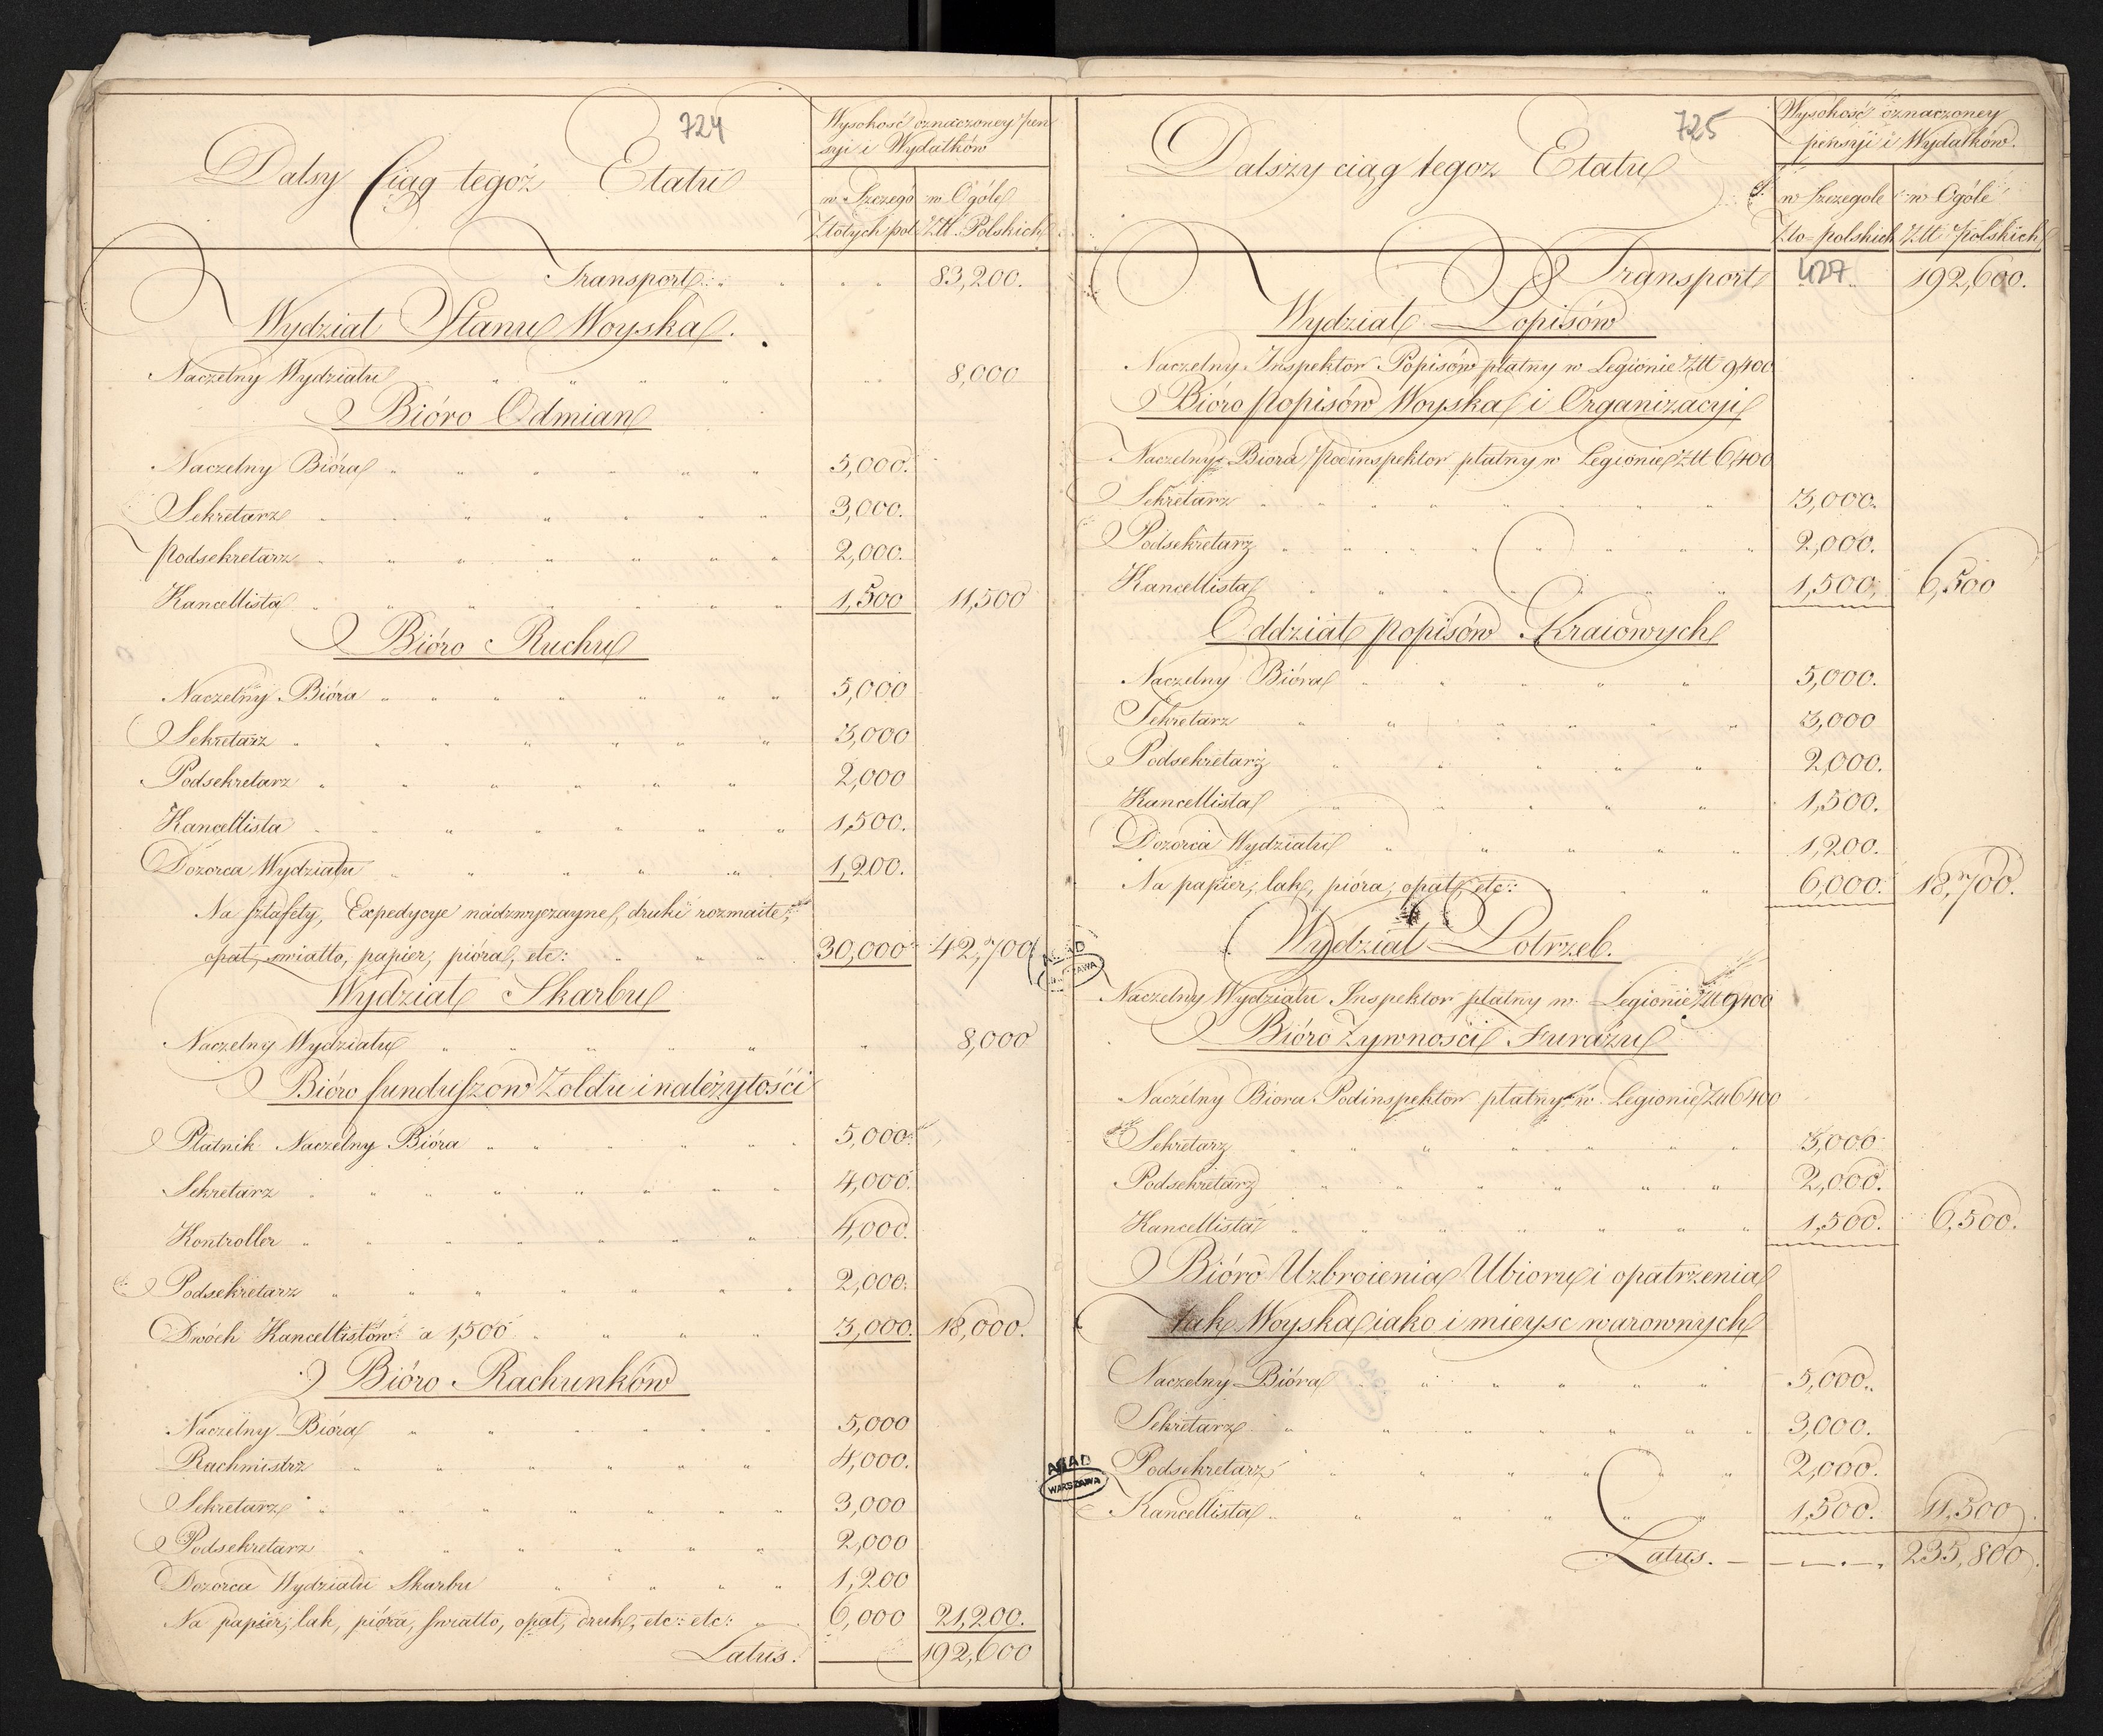 724
Dalsy Ciąg tegoż Etatu
Wysokość oznaczoney pen
syi i Wydatków
w Szczegó w Ogóle
Złotych pol. Złł. Polskich
Transport 83,200.
Wydział Stanu Woyska.
Naczelny Wydziału 8,000
Bióro Odmian
Naczelny Bióra 5,000.
Sekretarz 3,000.
Podsekretarz 2,000.
Kancellista 1,500 11,500
Bióro Ruchu
Naczelny Bióra 5,000
Sekretarz 3,000
Podsekretarz 2,000
Kancellista 1,500.
Dozorca Wydziału 1,200.
Na sztafety, Expedycye nadzwyczayne, druki rozmaite,
opał, swiatło, papier, pióra, etc: 30,000 42,700
Wydział Skarbu
Naczelny Wydziału 8,000
Bióro funduszow Zołdu i należytości
Płatnik Naczelny Bióra 5,000.
Sekretarz 4,000.
Kontroller 4,000.
Podsekretarz 2,000.
Dwóch Kancellistów a 1,500 3,000. 18,000.
Bióro Rachunków
Naczelny Bióra 5,000
Rachmistrz 4,000.
Sekretarz 3,000
Podsekretarz 2,000
Dozorca Wydziału Skarbu 1,200
Na papier, lak, pióra, swiatło, opał, druk, etc: etc: 6,000 21,200.
Latus. 192,600
725
Dalszy ciąg tegoz Etatu
Wysokość oznaczoney
pensyi i Wydatków.
w Szczegole w Ogóle
Zło-polskich Złł polskich
Transport 427 192,600.
Wydział Popisów
Naczelny Inspektor Popisów płatny w Legionie Złł 9,400
Bióro popisów Woyska i Organizacyi
Naczelny Biora Podinspektor płatny w Legionie Złł 6,400
Sekretarz 3,000.
Podsekretarz 2,000.
Kancellista 1,500. 6,500
Oddział popisów Kraiowych
Naczelny Bióra 5,000.
Sekretarz 3,000
Podsekretarz 2,000.
Kancellista 1,500.
Dozorca Wydziału 1,200.
Na papier, lak, pióra, opał, etc: 6,000. 18,700.
Wydział Potrzeb.
Naczelny Wydziału Inspektor płatny w Legionie Złł 9,400
Bióro Zywności Furażu
Naczelny Biora Podinspektor płatny w Legionie Złł 6400
Sekretarz 3,000
Podsekretarz 2,000.
Kancellista 1,500. 6,500.
Bióro Uzbroienia Ubioru i opatrzenia
tak Woyska iako i mieysc warownych
Naczelny Bióra 5,000.
Sekretarz 3,000.
Podsekretarz 2,000.
Kancellista 1,500. 11,500
Latus. 235,800
AGAD
WARSZAWA